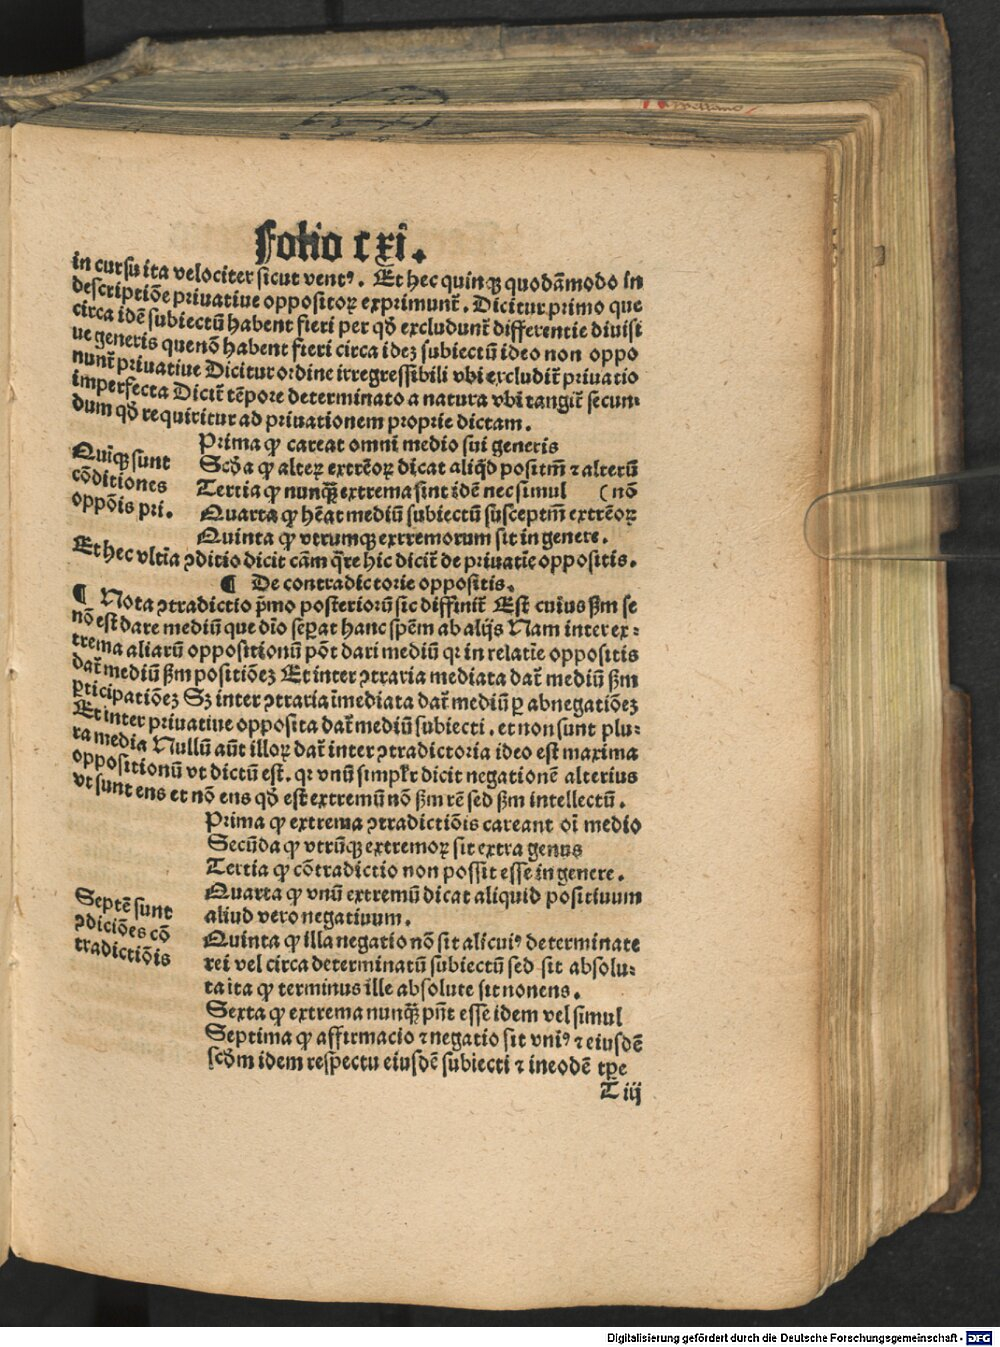 Folio cxi.
in cursu ita velociter sicut ventꝰ. Et hec quinqꝫ quodāmodo in
descriptiōe priuatiue oppositoꝝ exprimunt᷑. Dicitur primo que
circa idē subiectū habent fieri per qḋ excludunt᷑ differentie diuisi
ue generis que nō habent fieri circa idez subiectū ideo non oppo
nunt᷑ priuatiue Dicitur ordine irregressibili vbi excludit᷑ priuatio
imperfecta Dicit᷑ tēpore determinato a natura vbi tangit᷑ secun⸗
dum qḋ requiritur ad priuationem proprie dictam.
Quīqꝫ sunt
cōditiones
oppōis pri.
Prima ꝙ careat omni medio sui generis
Scḋa ꝙ alteꝝ extrēoꝝ dicat aliq̇d positm̄ ⁊ alterū
Tertia ꝙ nunq̄ꝫ extrema sint idē nec simul (nō
Quarta ꝙ hēat mediū subiectū susceptm̄ extrēoꝝ
Quinta ꝙ vtrumqꝫ extremorum sit in genere.
Et hec vltīa ꝯditio dicit cām q̄re hic dicit᷑ de priuatīe oppositis.
¶ De contradictorie oppositis.
¶ Nota ꝯtradictio p̄mo posterioꝝū sic diffinit᷑ Est cuius ẜm se
nō est dare mediū que dīo sep̱at hanc spēm ab alijs Nam inter ex⸗
trema aliarū oppositionū pōt dari mediū qꝛ in relatīe oppositis
dat᷑ mediū ẜm positiōeꝫ Et inter ꝯtraria mediata dat᷑ mediū ẜm
ꝑticipatiōeꝫ Sꝫ inter ꝯtraria īmediata dat᷑ mediū ꝑ abnegatiōeꝫ
Et inter priuatiue opposita dat᷑ mediū subiecti. et non sunt plu⸗
ra media Nullū aūt illoꝝ dat᷑ inter ꝯtradictoria ideo est maxima
oppositionū vt dictū est. qꝛ vnū simplr̄ dicit negationē alterius
vt sunt ens et nō ens qḋ est extremū nō ẜm rē sed ẜm intellectū.
Septē sunt
ꝯdiciōes cō
tradictiōis
Prima ꝙ extrema ꝯtradictiōis careant oī medio
Secūda ꝙ vtrūqꝫ extremoꝝ sit extra genus
Tertia ꝙ cōtradictio non possit esse in genere.
Quarta ꝙ vnū extremū dicat aliquid positiuum
aliud vero negatiuum.
Quinta ꝙ illa negatio nō sit alicuiꝰ determinate
rei vel circa determinatū subiectū sed sit absolu⸗
ta ita ꝙ terminus ille absolute sit nonens.
Sexta ꝙ extrema nunq̄ꝫ pn̄t esse idem vel simul
Septima ꝙ affirmacio ⁊ negatio sit vniꝰ ⁊ eiusdē
scḋm idem respectu eiusdē subiecti ⁊ in eodē tꝑe
T iij
Digitalisierung gefördert durch die Deutsche Forschungsgemeinschaft - DFG